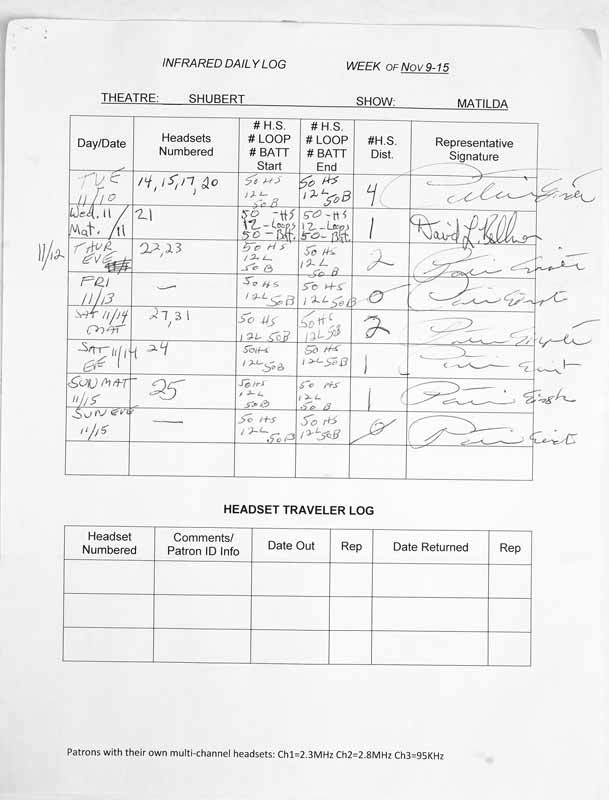 INFRARED DAILY LOG WEEK OF NOV 9-15
THEATRE: SHUBERT SHOW: MATILDA
Day/Date
Headsets Numbered
# H.S. # LOOP # BATT Start
# H.S. # LOOP # BATT End
#H.S. Dist.
Representative Signature
TUE 11/10 14, 15, 17, 20 50 HS 12L 50B 50 HS 12L 50B 4
Wed. 11/11 Mat. 21 50 -HS 12-Loops 50-Bat. 50-HS 12-Loops 50-Bat. 1 David L.
11/12 THUR EVE 22,23 50 HS 12L 50B 50 HS 12L 50B 2
FRI 11/13 — 50 HS 12L 50B 50 HS 12L 50B 0
SAT 11/14 MAT 27,31 50 HS 12L 50B 50 HS 12L 50B 2
SAT 11/14 EVE 24 50HS 12L 50B 50 HS 12L 50B 1
SUN MAT 11/15 25 50HS 12L 50B 50 HS 12L 50B 1
SUN EVE 11/15 — 50 HS 12L 50B 50 HS 12L 50B 0
HEADSET TRAVELER LOG
Headset Numbered
Comments/ Patron ID Info
Date Out
Rep
Date Returned
Rep
Patrons with their own multi-channel headsets: Ch1=2.3MHz Ch2=2.8MHz Ch3=95KHz